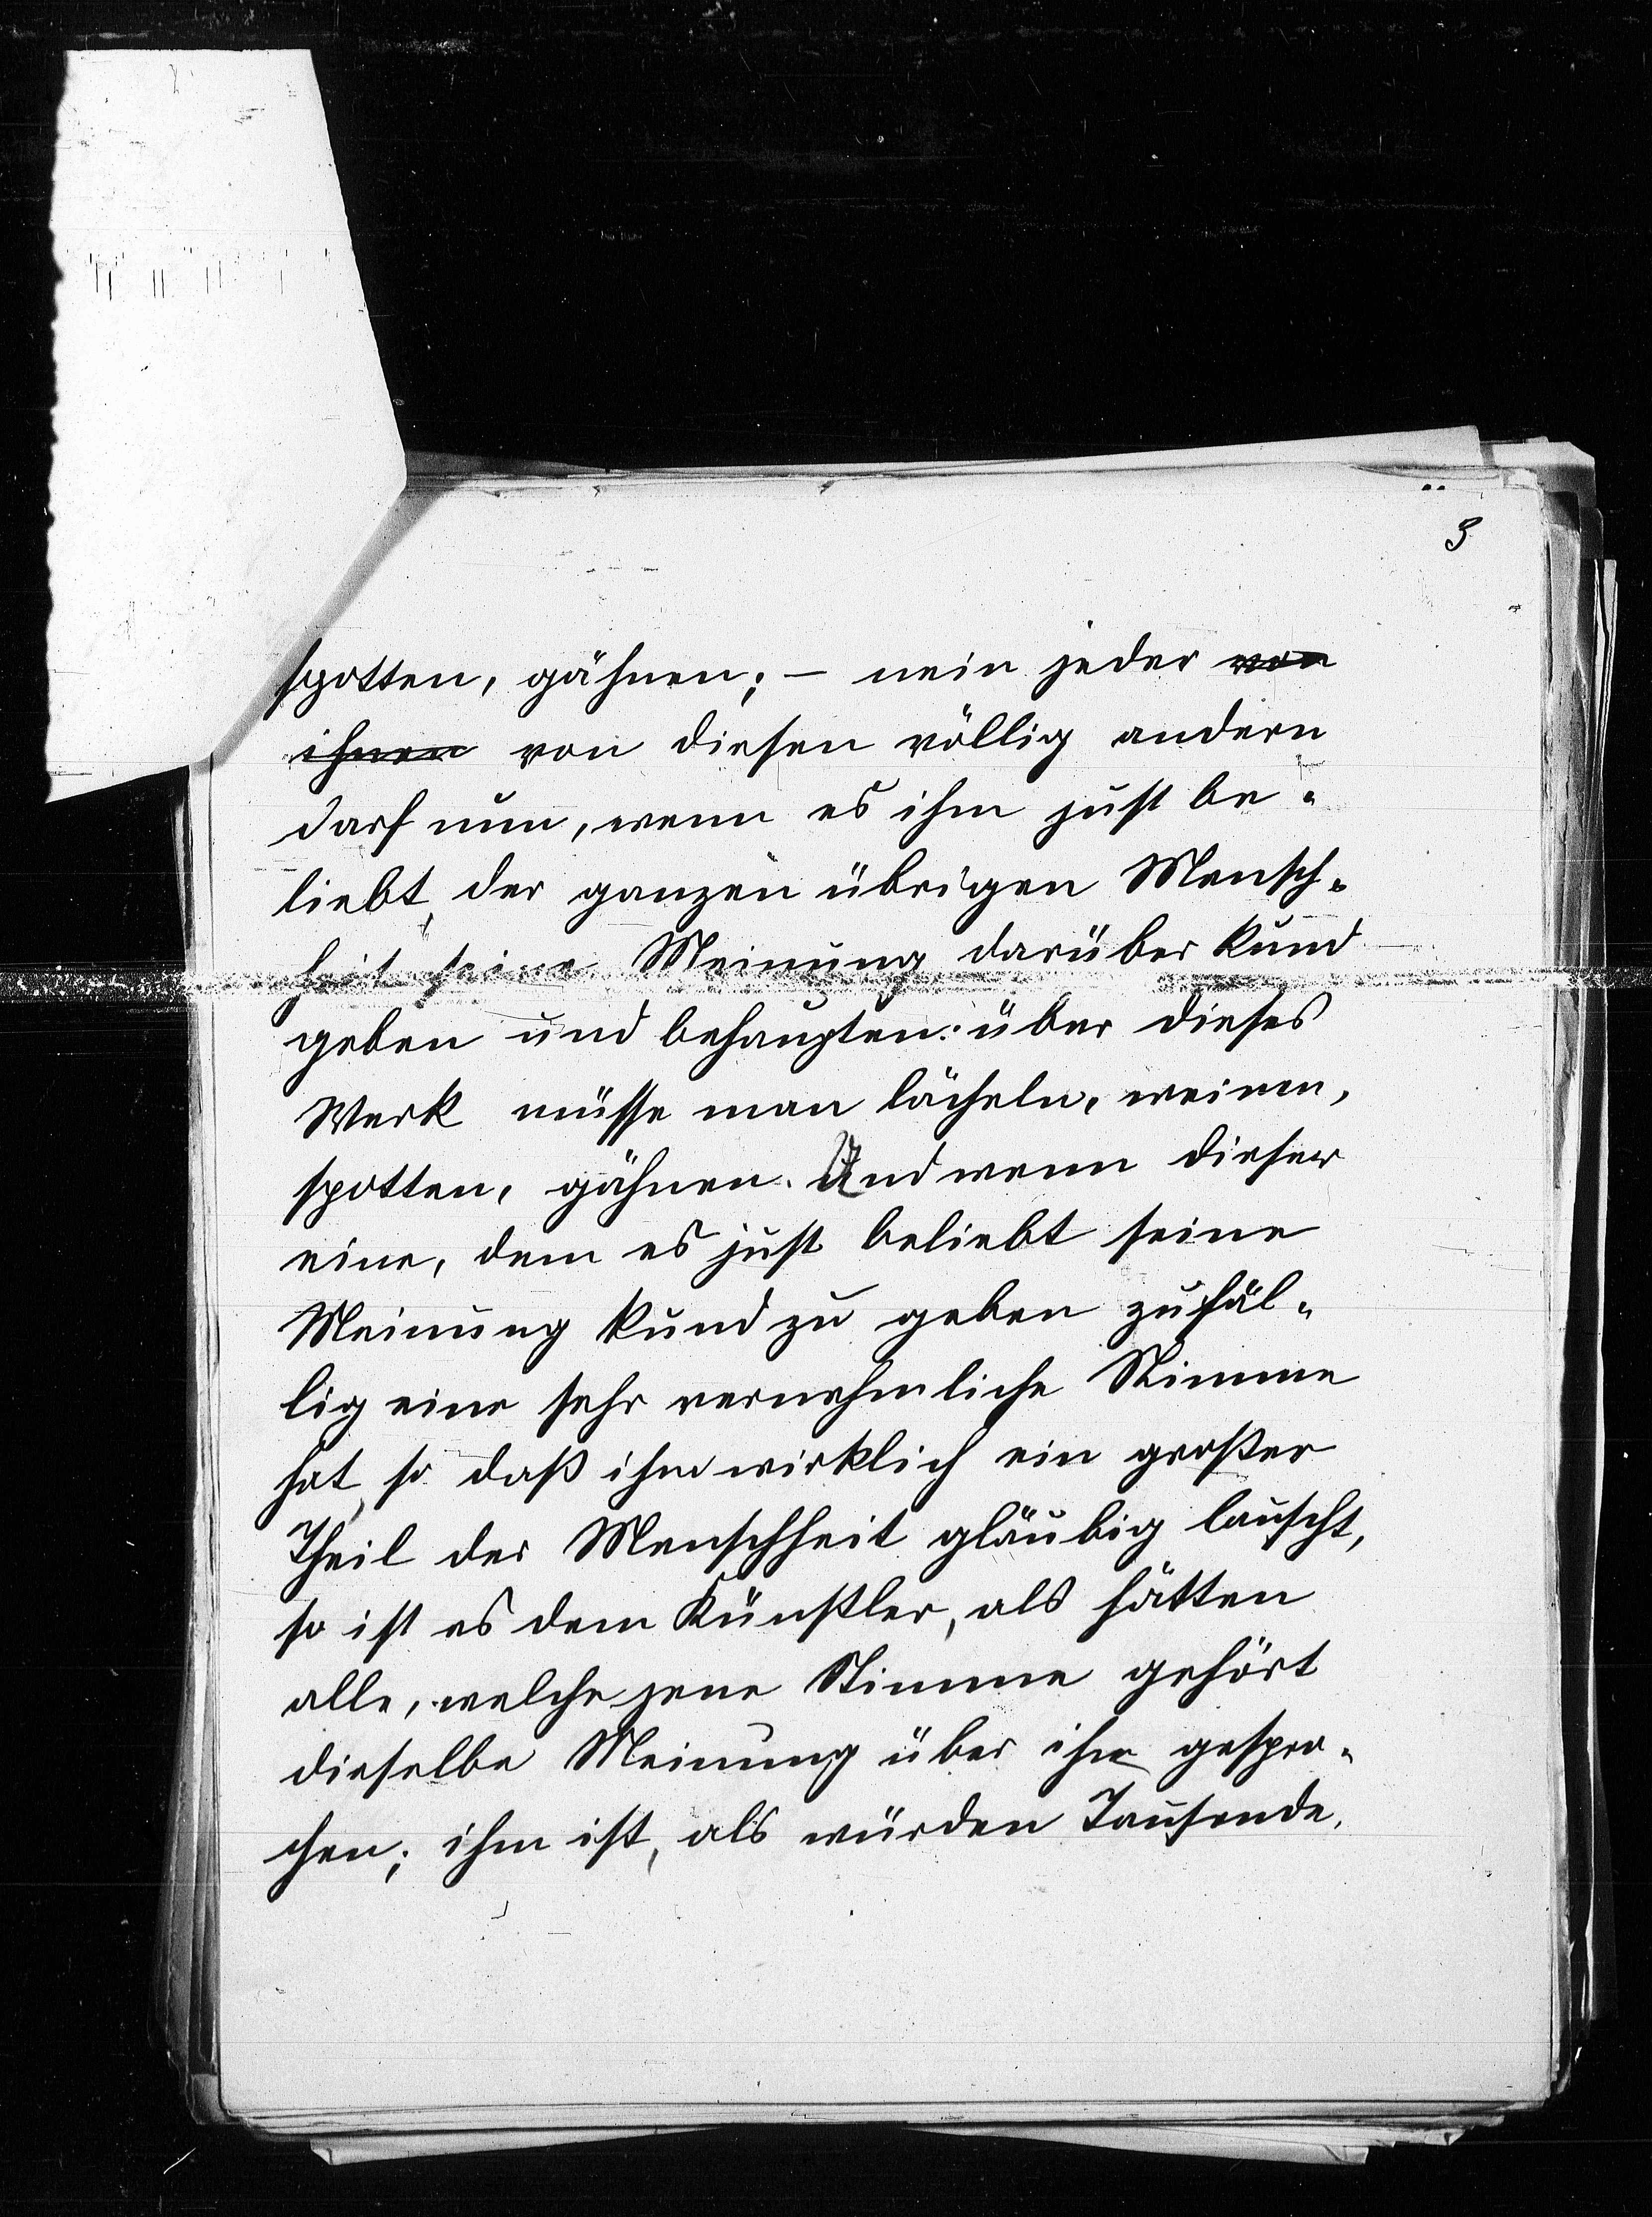 3
spotten, gähnen; – nein jeder von
ihnen von diesen völlig andern
darf nun, wenn es ihm just be-
liebt, der ganzen übrigen Mensch-
heit seine Meinung darüber kund
geben und behaupten: über dieses
Werk müsse man lächeln, weinen,
spotten, gähnen. Und wenn dieser
eine, dem es just beliebt seine
Meinung kund zu geben zufäl-
lig eine sehr vernehmliche Stimme
hat, so daß ihm wirklich ein großer
Theil der Menschheit gläubig lauscht,
so ist es dem Künstler, als hätten
alle, welche jene Stimme gehört
dieselbe Meinung über ihn gespro-
chen; ihm ist, als würden Tausende,